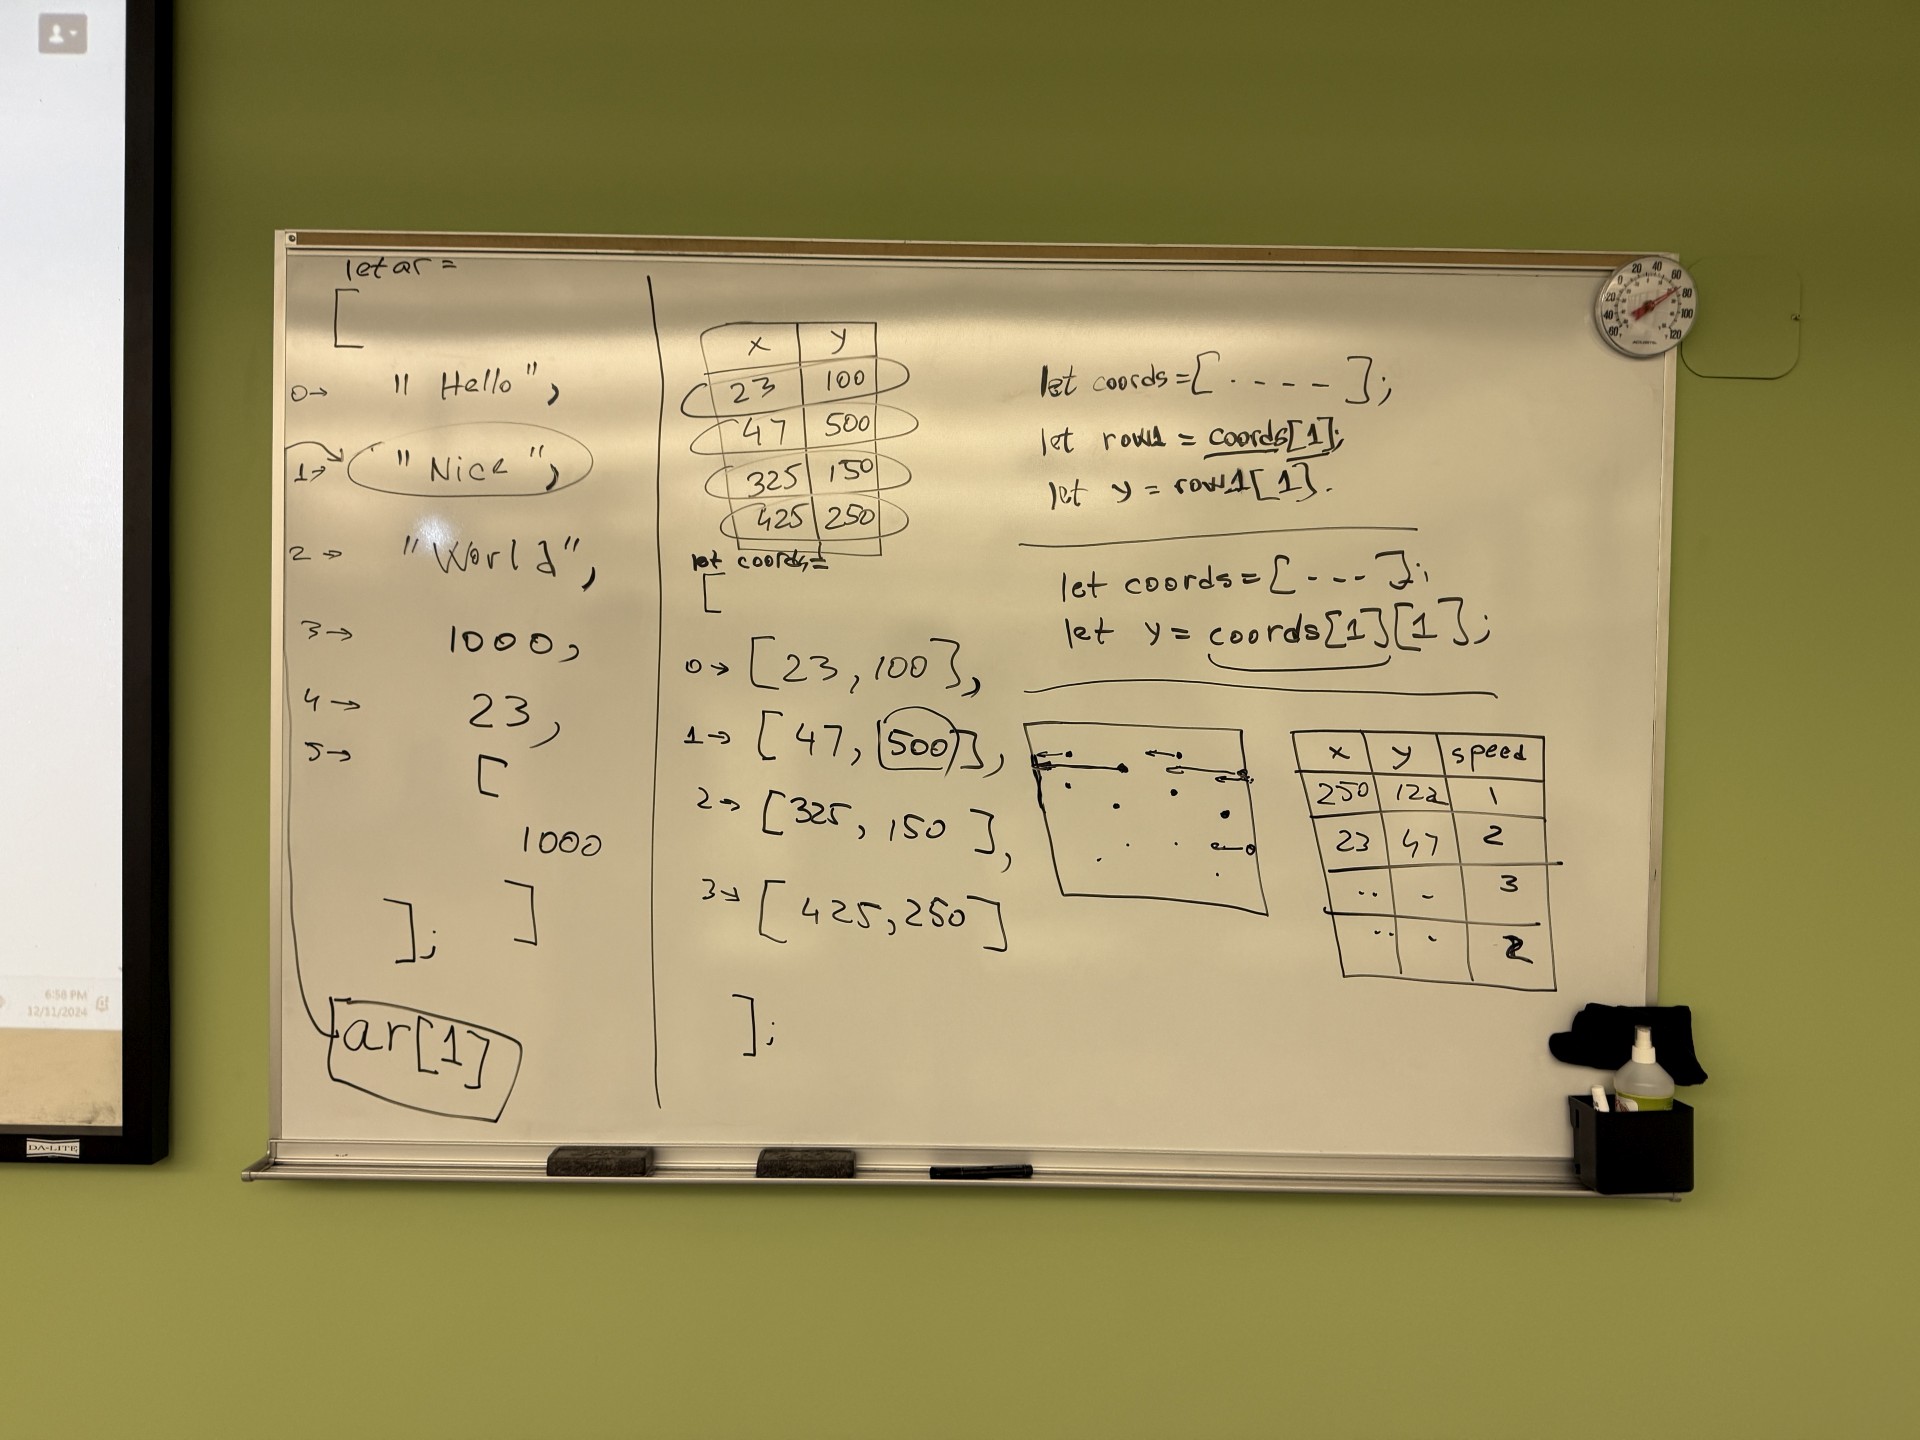 let ar =
[
0→ "Hello",
1→ "Nice",
2→ "World",
3→ 1000,
4→ 23,
5→ [
1000
]
];
ar[1]
x y
23 100
47 500
325 150
425 250
let coords=
[
0→ [23,100],
1→ [47,500],
2→ [325, 150],
3→ [425,250]
];
let coords=[.----];
let row1 = coords[1];
let y = row1[1].
let coords=[---];
let y= coords[1][1];
x y speed
250 122 1
23 47 2
.. - 3
.. . 2
20 40 60 80 100 120
0 20 40 60
6:58 PM
12/11/2024
DA-LITE